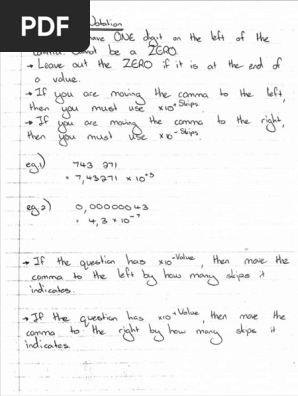 PDF
Notation
have ONE digit on the left of the
comma. Cannot be a ZERO.
→ Leave out the ZERO if it is at the end of
a value.
→ If you are moving the comma to the left,
then you must use x10^+Skips.
→ If you are moving the comma to the right,
then you must use x10^-Skips.
eg.1) 743 271
= 7,43271 x 10^+5
eg.2) 0,00000043
= 4,3 x 10^-7
→ If the question has x10^-Value, then move the
comma to the left by how many skips it
indicates.
→ If the question has x10^+Value, then move the
comma to the right by how many skips it
indicates.